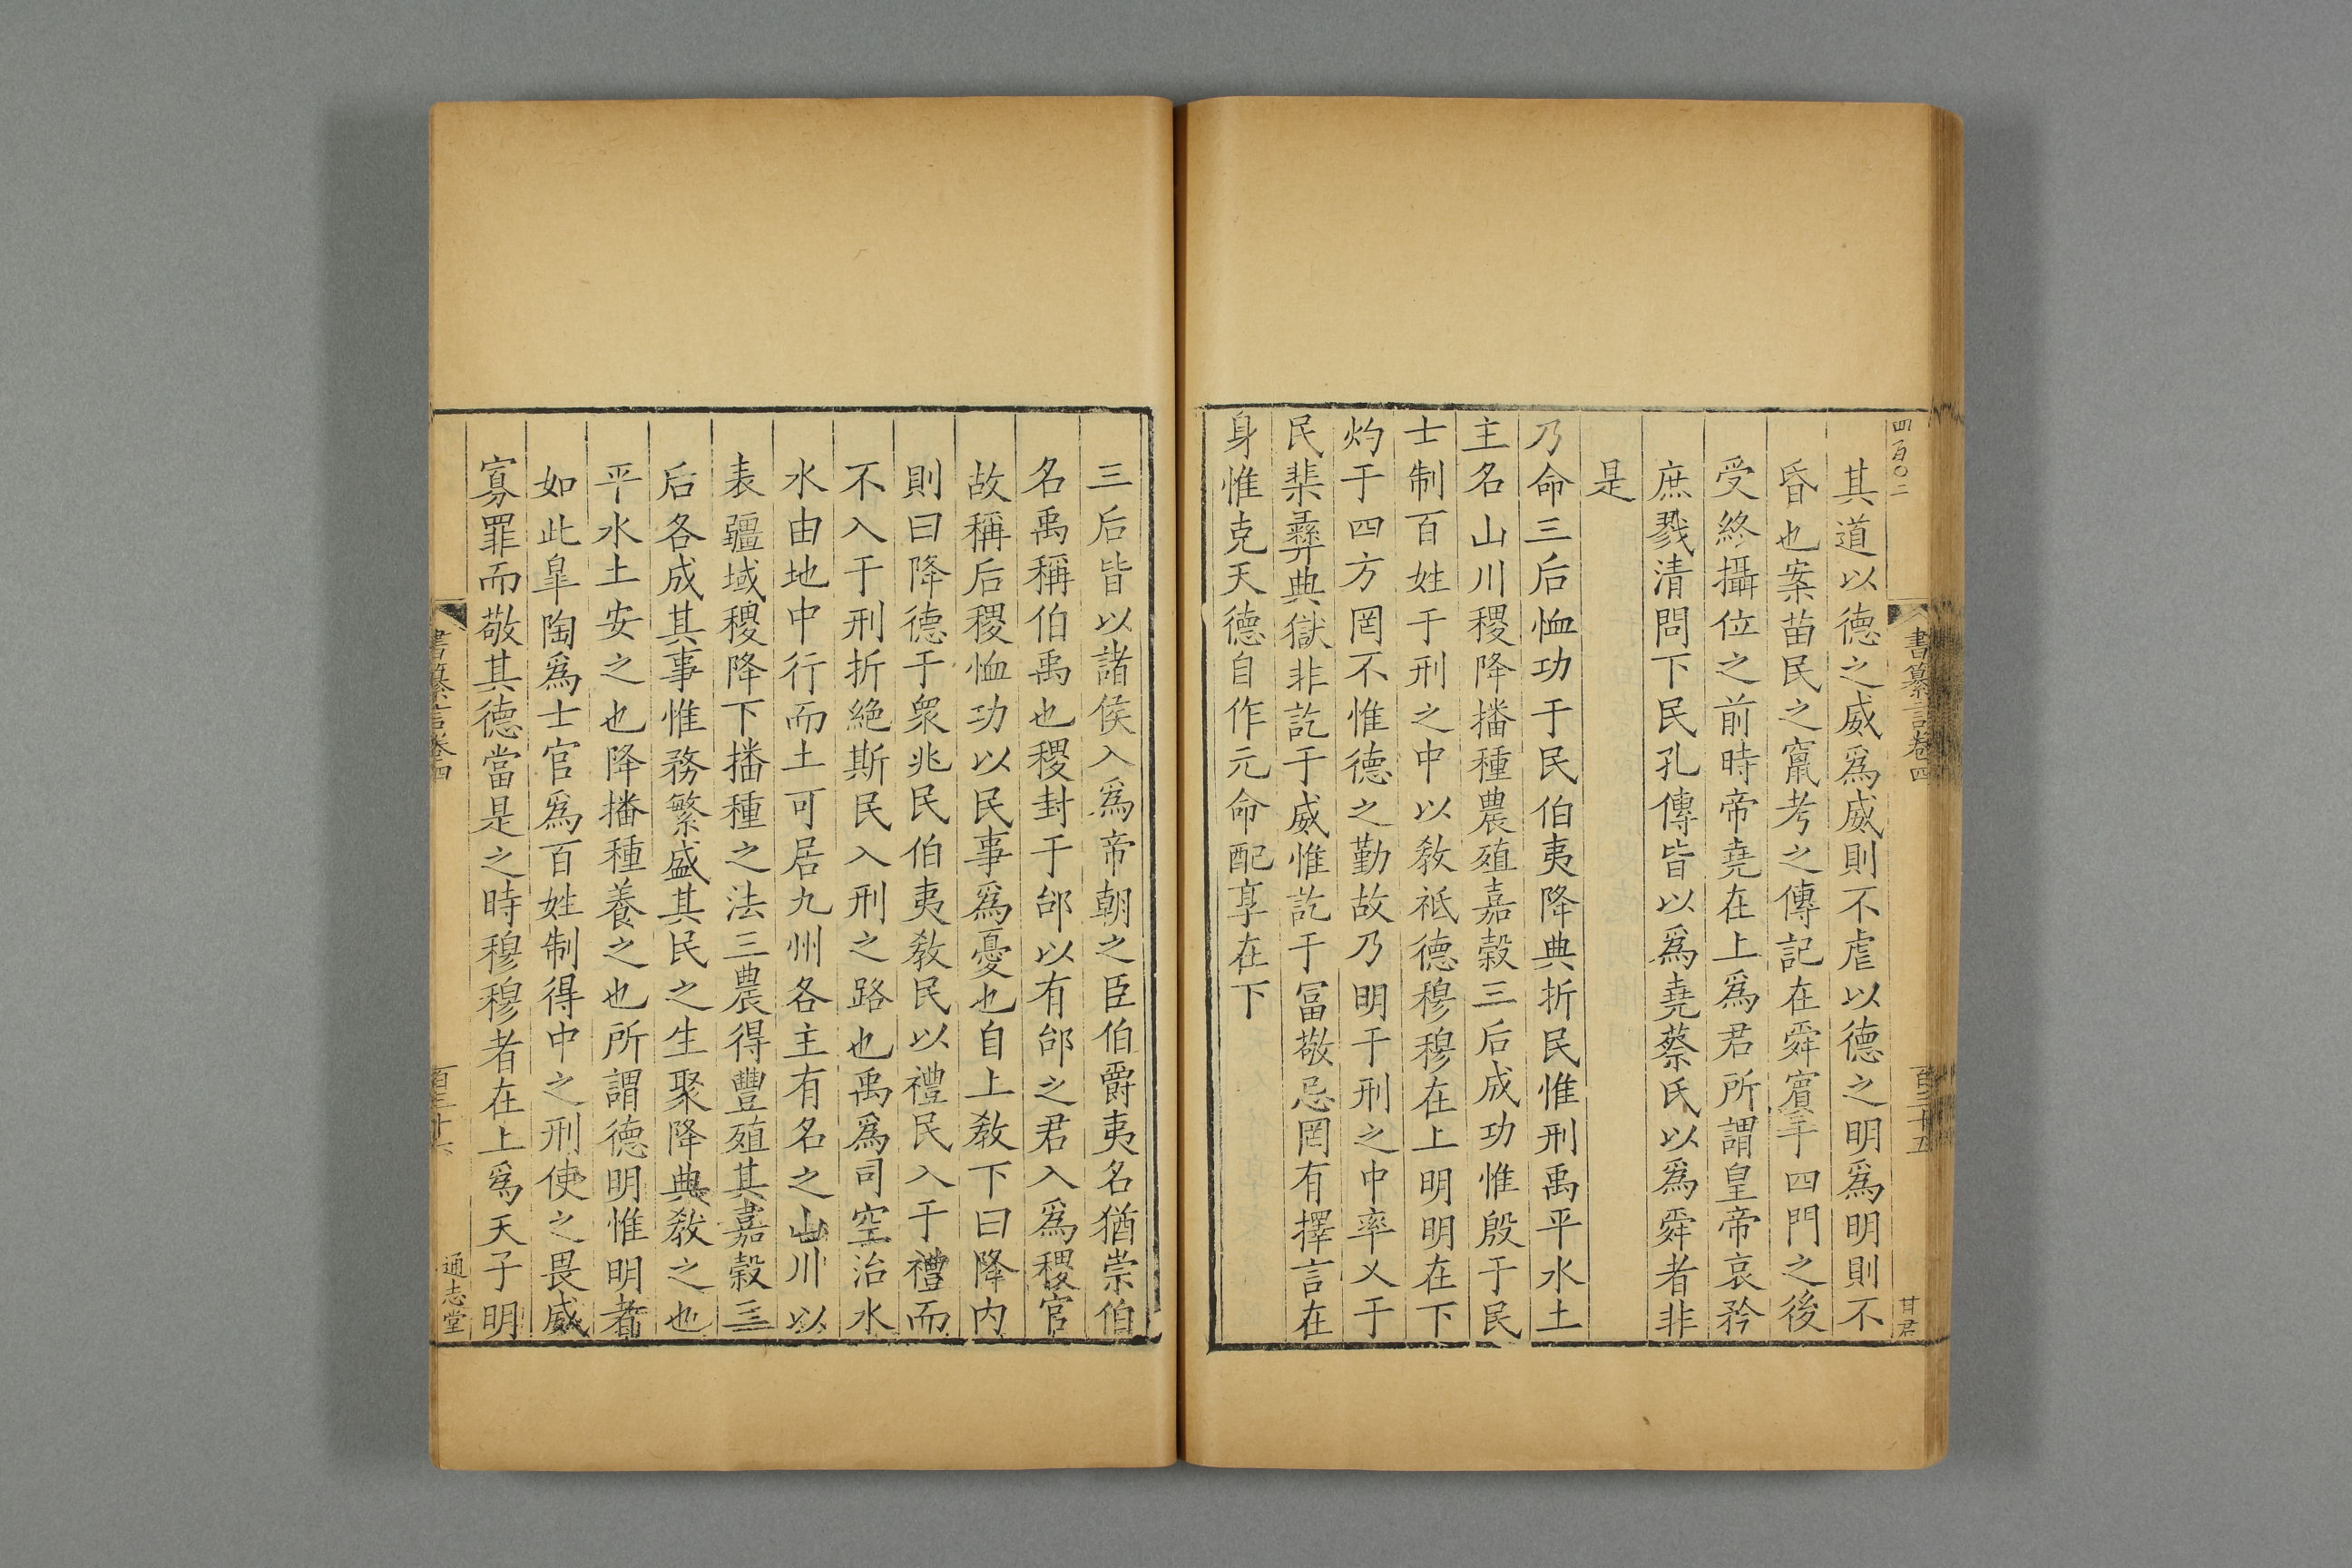 四百〇二
書纂言卷四
百三十五
甘君
其道以德之威爲威則不虐以德之明爲明則不
昏也案苗民之竄考之傳記在舜賓于四門之後
受終攝位之前時帝堯在上爲君所謂皇帝哀矜
庶戮清問下民孔傳皆以爲堯蔡氏以爲舜者非
是
乃命三后恤功于民伯夷降典折民惟刑禹平水土
主名山川稷降播種農殖嘉穀三后成功惟殷于民
士制百姓于刑之中以敎祗德穆穆在上明明在下
灼于四方罔不惟德之勤故乃明于刑之中率乂于
民棐彝典獄非訖于威惟訖于富敬忌罔有擇言在
身惟克天德自作元命配享在下
三后皆以諸侯入爲帝朝之臣伯爵夷名猶崇伯
名禹稱伯禹也稷封于邰以有邰之君入爲稷官
故稱后稷恤功以民事爲憂也自上敎下曰降内
則曰降德于衆兆民伯夷敎民以禮民入于禮而
不入于刑折絶斯民入刑之路也禹爲司空治水
水由地中行而土可居九州各主有名之山川以
表疆域稷降下播種之法三農得豐殖其嘉穀三
后各成其事惟務繁盛其民之生聚降典敎之也
平水土安之也降播種養之也所謂德明惟明者
如此皐陶爲士官爲百姓制得中之刑使之畏威
寡罪而敬其德當是之時穆穆者在上爲天子明
書纂言卷四
百三十六
通志堂